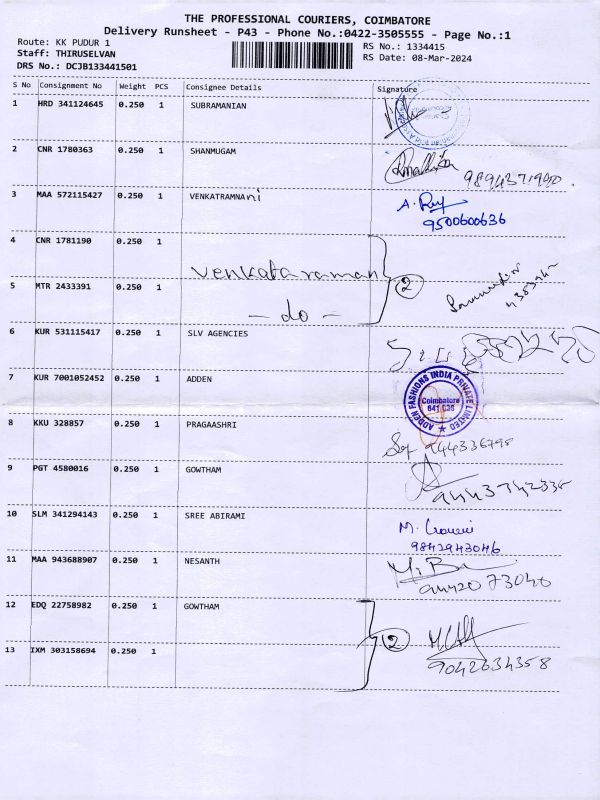 THE PROFESSIONAL COURIERS, COIMBATORE
Delivery Runsheet - P43 - Phone No.:0422-3505555 - Page No.:1
Route: KK PUDUR 1
Staff: THIRUSELVAN
DRS No.: DCJB133441501
RS No.: 1334415
RS Date: 08-Mar-2024
S No Consignment No Weight PCS Consignee Details Signature
1 HRD 341124645 0.250 1 SUBRAMANIAN
2 CNR 1780363 0.250 1 SHANMUGAM
3 MAA 572115427 0.250 1 VENKATRAMNAni A. Ray
9500600636
4 CNR 1781190 0.250 1
venkataraman 2
5 MTR 2433391 0.250 1
- do -
6 KUR 531115417 0.250 1 SLV AGENCIES
7 KUR 7001052452 0.250 1 ADDEN
ADDEN FASHIONS INDIA PRIVATE LIMITED
Coimbatore
641 038
8 KKU 328857 0.250 1 PRAGAASHRI
9 PGT 4580016 0.250 1 GOWTHAM
10 SLM 341294143 0.250 1 SREE ABIRAMI
9842943046
11 MAA 943688907 0.250 1 NESANTH
9442073040
12 EDQ 22758982 0.250 1 GOWTHAM
2
13 IXM 303158694 0.250 1
9042634358